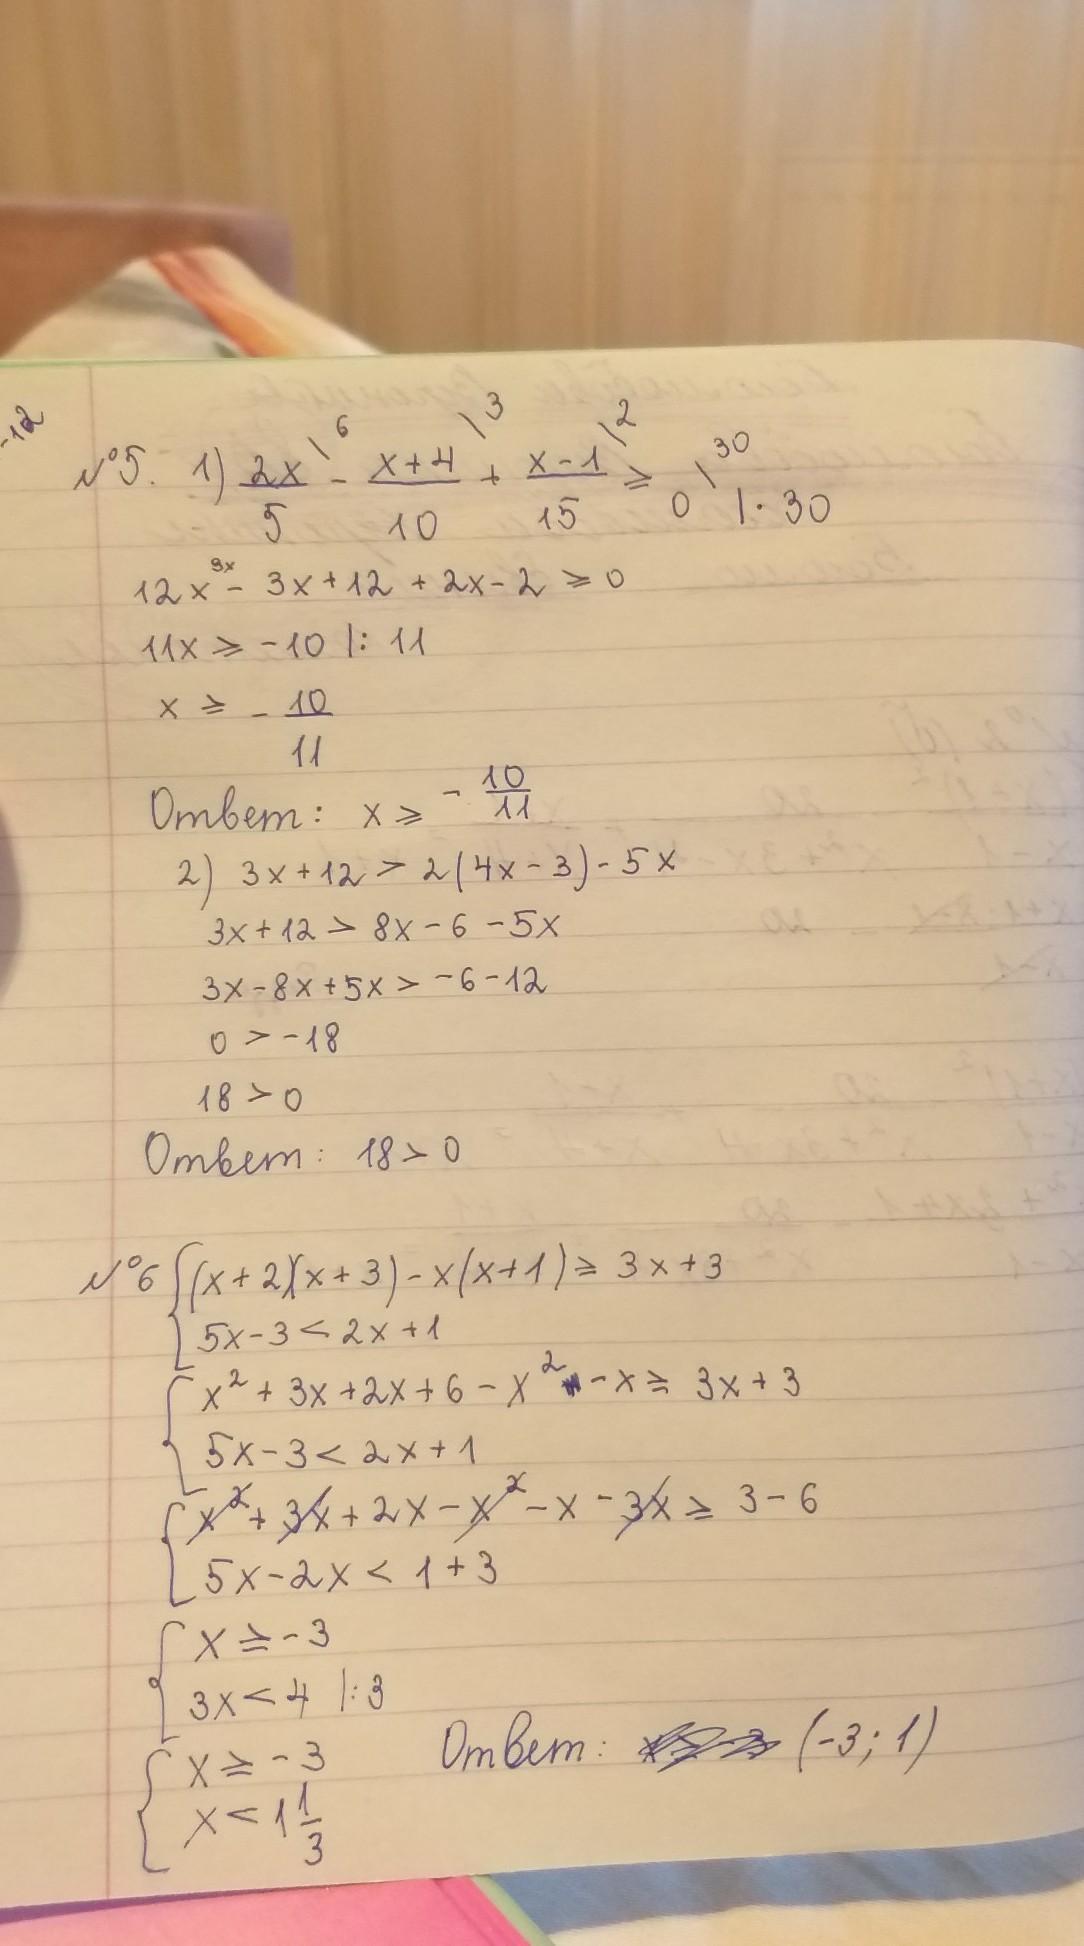 -12
№5. 1) 2x/5 \6 - x+4/10 \3 + x-1/15 \2 ⩾ 0 \30 |· 30
12x - 3x+12 + 2x-2 ⩾ 0
11x ⩾ -10 |: 11
x ⩾ - 10/11
Ответ: x ⩾ - 10/11
2) 3x+12 > 2(4x-3)-5x
3x+12 > 8x-6-5x
3x-8x+5x > -6-12
0 > -18
18 > 0
Ответ: 18 > 0
№6 { (x+2)(x+3) - x(x+1) ⩾ 3x+3
5x-3 < 2x+1
{ x² + 3x+2x+6 - x² -x ⩾ 3x+3
5x-3 < 2x+1
{ x² + 3x + 2x - x² - x - 3x ⩾ 3-6
5x-2x < 1+3
{ x ⩾ -3
3x < 4 |:3
{ x ⩾ -3
x < 1 1/3
Ответ: (-3; 1)